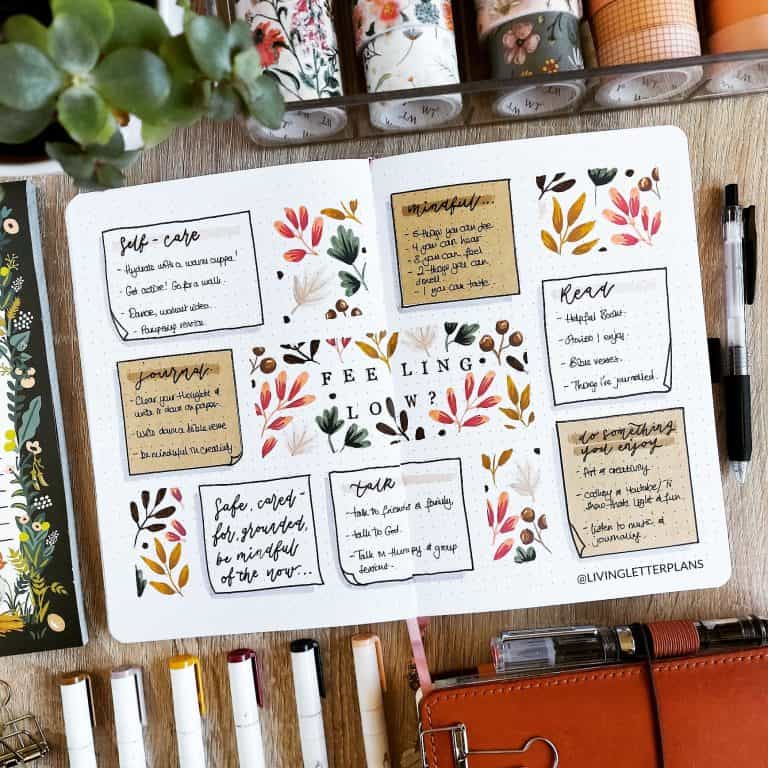 self-care
- Hydrate with a warm cuppa!
- Get active! Go for a walk.
- Dance, workout video.
- Pampering service.
journal
- Clear your thoughts &
write it down on paper.
- Write down a bible verse
- be mindful in creativity
Safe, cared-
for, grounded,
be mindful
of the now...
FEELING
LOW?
talk
- talk to friends & family.
- talk to God.
- Talk in therapy & group
sessions.
mindful...
- 5 things you can see
- 4 you can hear
- 3 you can feel
- 2 things you can
smell
- 1 you can taste.
Read
- Helpful books.
- Stories I enjoy.
- Bible verses.
- Things I've journalled.
do something
you enjoy
- Art & creativity.
- catchup & Youtube/TV
shows thats light & fun.
- listen to music &
journaling.
@LIVINGLETTERPLANS